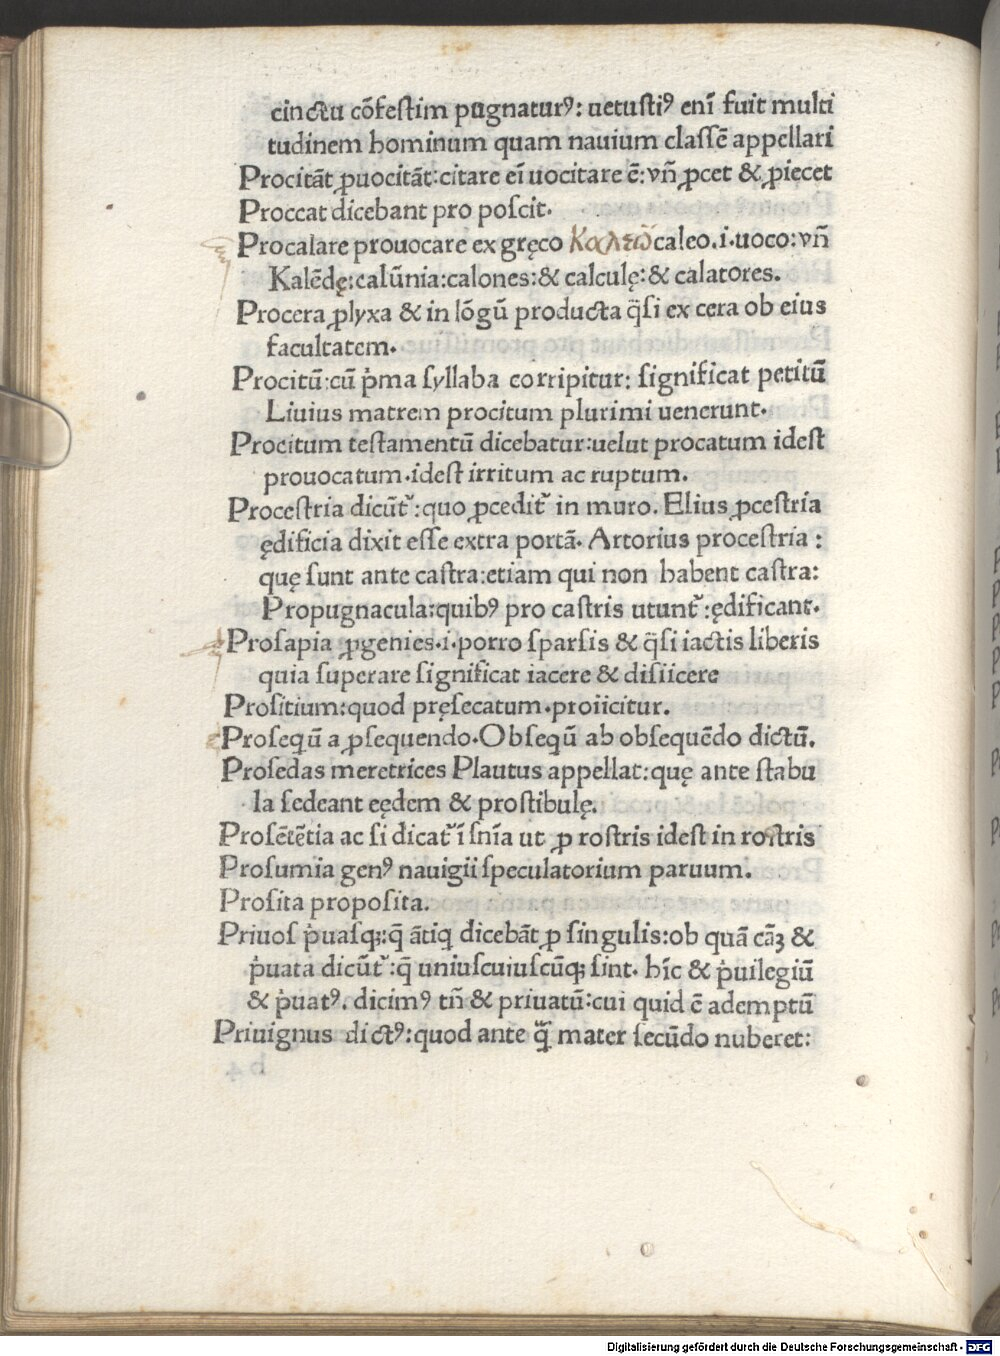 cinctu cōfestim pugnaturꝰ: uetustiꝰ enī fuit multi
tudinem hominum quam nauium classē appellari
Procitāt ꝓuocitāt: citare eī uocitare ē: vñ ꝓcet & ꝓiecet
Proccat dicebant pro poscit.
Procalare prouocare ex gręco Καλεῶ caleo.i.uoco: vñ
Kalēdę: calūnia: calones: & calculę: & calatores.
Procera ꝓlyxa & in lōgū producta q̄si ex cera ob eius
facultatem.
Procitū: cū p̍ma syllaba corripitur: significat petitū
Liuius matrem procitum plurimi uenerunt.
Procitum testamentū dicebatur: uelut procatum idest
prouocatum. idest irritum ac ruptum.
Procestria dicūt᷑: quo ꝓcedit᷑ in muro. Elius ꝓcestria
ędificia dixit esse extra portā. Artorius procestria:
quę sunt ante castra: etiam qui non habent castra:
Propugnacula: quibꝰ pro castris utunt᷑: ędificant.
Prosapia ꝓgenies.i.porro sparsis & q̄si iactis liberis
quia superare significat iacere & disiicere
Prositium: quod pręsecatum. proiicitur.
Proseq̄ū a ꝓsequendo. Obseq̄ū ab obsequēdo dictū.
Prosedas meretrices Plautus appellat: quę ante stabu
la sedeant eędem & prostibulę.
Prosētētia ac si dicat᷑ ī snīa ut ꝓ rostris idest in rostris
Prosumia genꝰ nauigii speculatorium paruum.
Prosita proposita.
Priuos p̍uasqꝫ: q̄ ātiq̄ dicebāt ꝓ singulis: ob quā cāꝫ &
p̍uata dicūt᷑: q̄ uniuscuiuscūqꝫ sint. hīc & p̍uilegiū
& p̍uatꝰ. dicimꝰ tñ & priuatū: cui quid ē ademptū
Priuignus dictꝰ: quod ante q̄̃ mater secūdo nuberet:
Digitalisierung gefördert durch die Deutsche Forschungsgemeinschaft - DFG